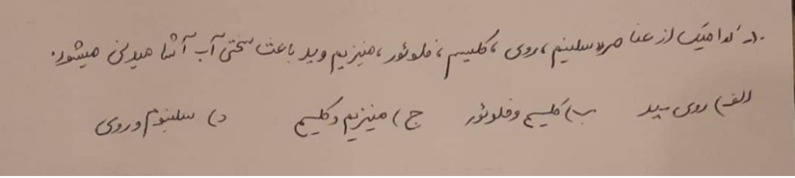 ۱۰- کدامیک از عناصر سلینیم، روی، کلسیم، فلوئور، منیزیم وید باعث سختی آب آشامیدنی میشود.
الف) روی وید ب) کلسیم و فلوئور ج) منیزیم و کلسیم د) سلینیوم و روی